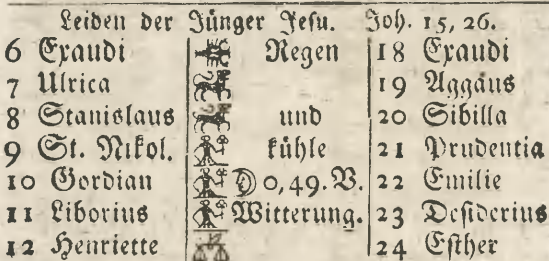 Leiden der Jünger Jesu. Joh. 15, 26.
6 Exaudi Regen 18 Exaudi
7 Ulrica 19 Aggäus
8 Stanislaus und 20 Sibilla
9 St. Nikol. kühle 21 Prudentia
10 Gordian 0, 49. V. 22 Emilie
11 Liborius Witterung. 23 Desiderius
12 Henriette 24 Esther